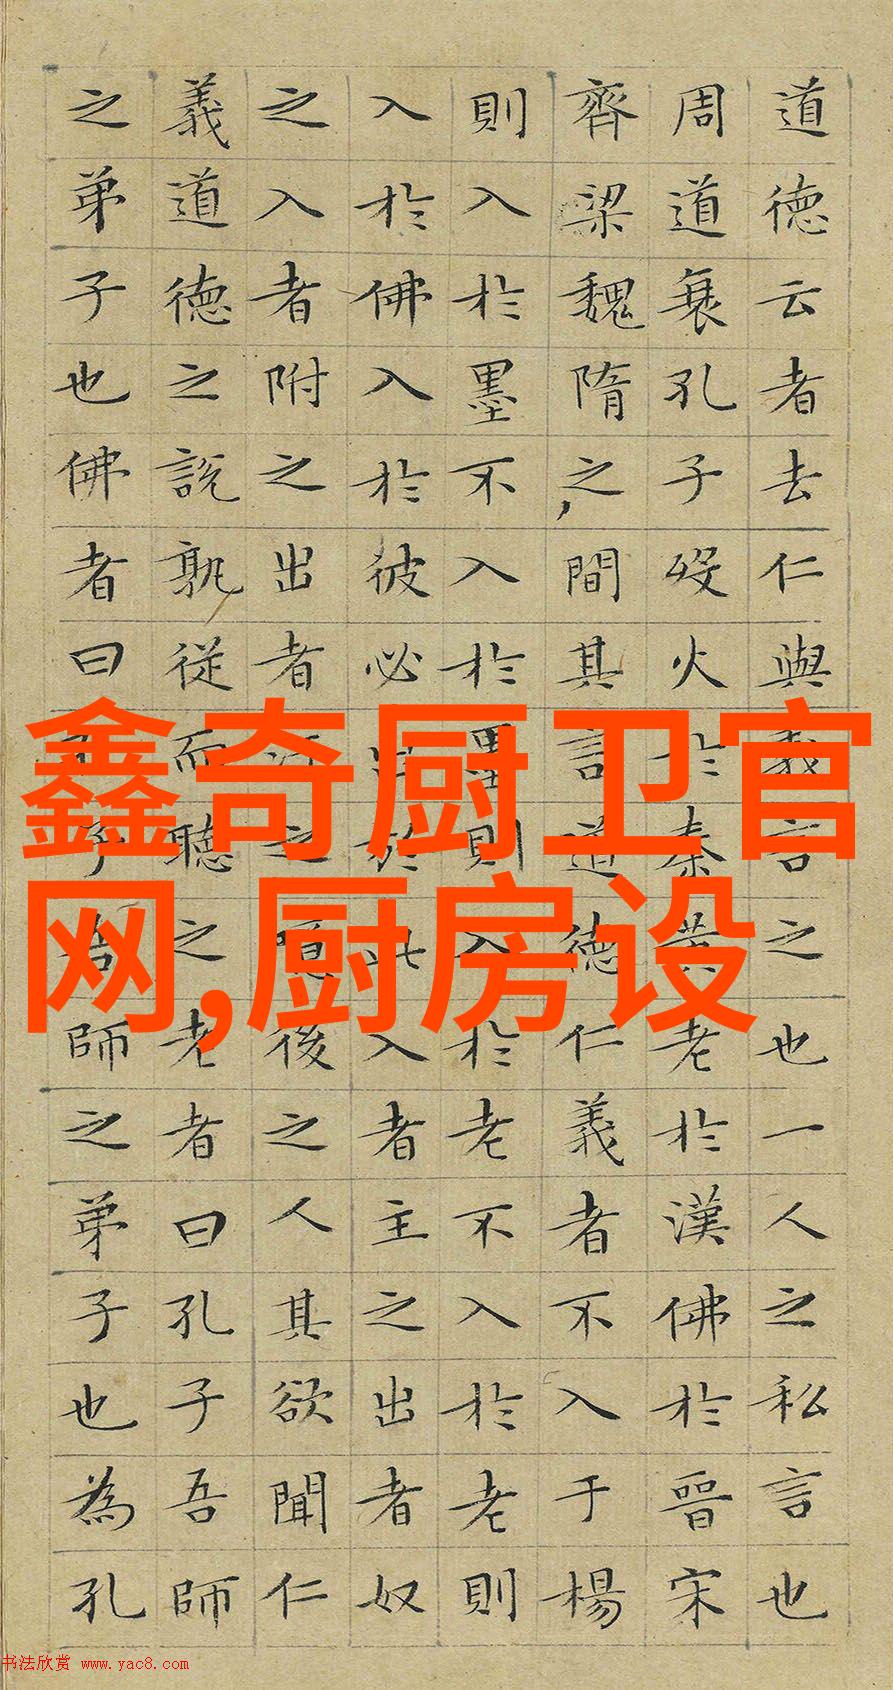 道德云者去仁與義言之也一人之私言也
周道衰孔子歿火於秦黃老於漢佛於晉宋
齊梁魏隋之間其言道德仁義者不入于楊
則入於墨不入於墨則入於老不入於老則
入於佛入於彼必出於此入者主之出者奴
之入者附之出者汙之噫後之人其欲聞仁
義道德之說孰從而聽之老者曰孔子吾師
之弟子也佛者曰孔子吾師之弟子也為孔
鑫奇厨卫官
网,厨房设
书法欣赏 www.yac8.com